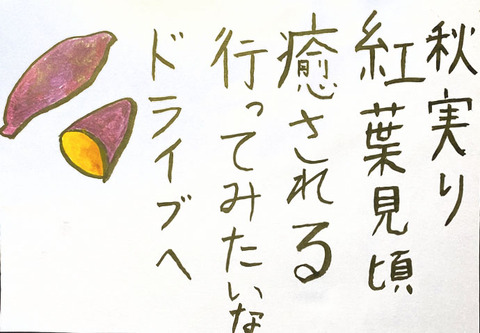 秋実り
紅葉見頃
癒される
行ってみたいな
ドライブへ